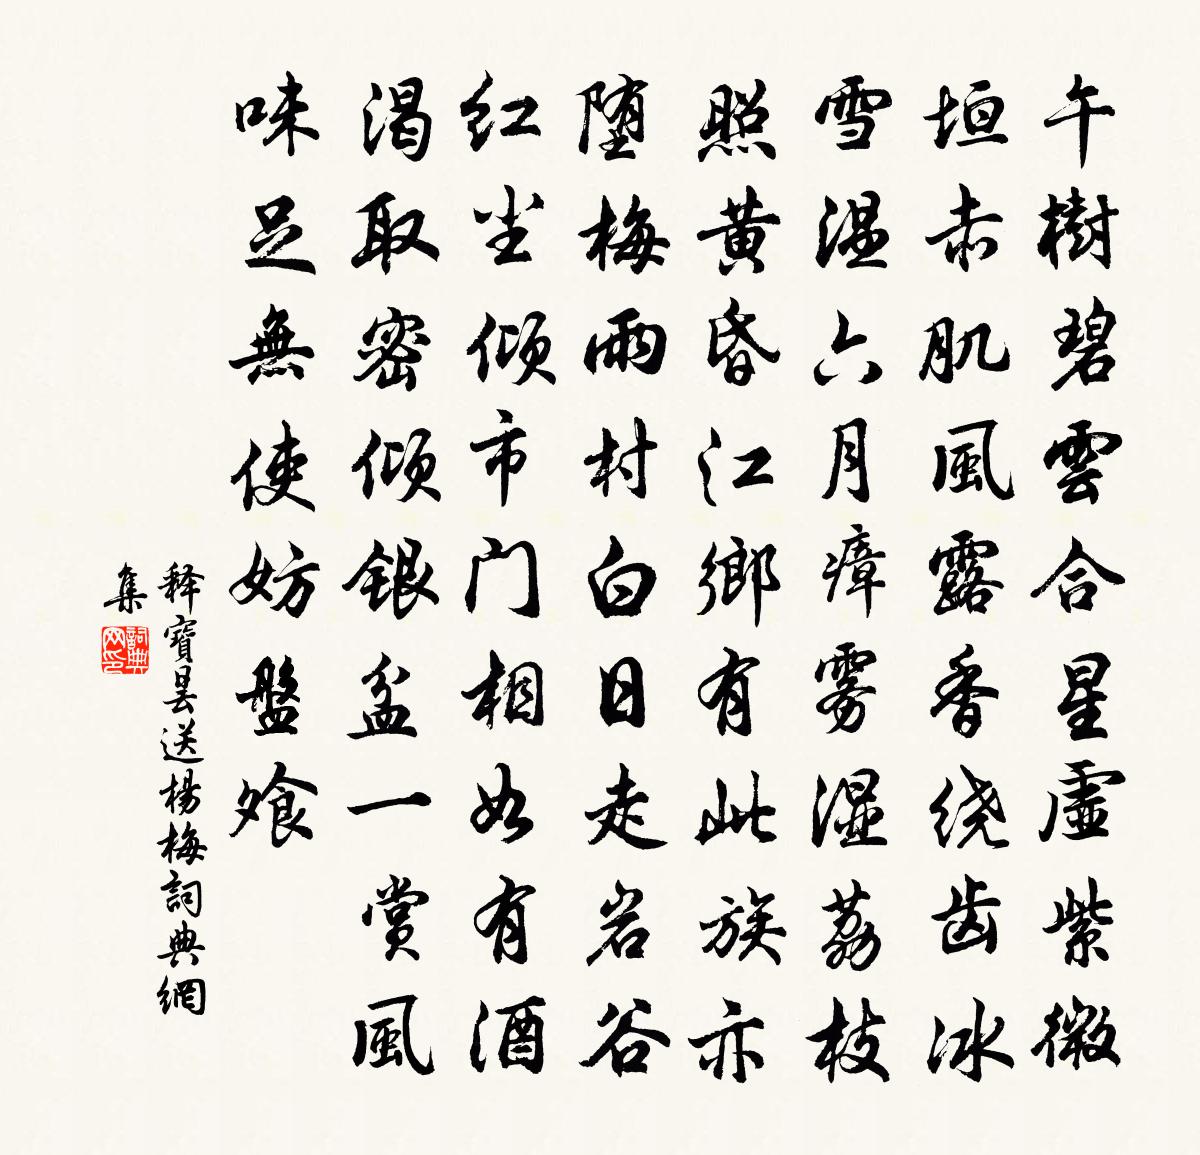 午樹碧雲合星虚紫微
垣赤肌風露香绕齿冰
雪温六月瘴雾湿荔枝
照黄昏江鄉有此族亦
堕梅雨村白日走岩谷
红尘倾市门相如有酒
渴取密倾银盆一赏風
味足無使妨盤飧
释寶曇送楊梅詞典網
集
詞典
网印